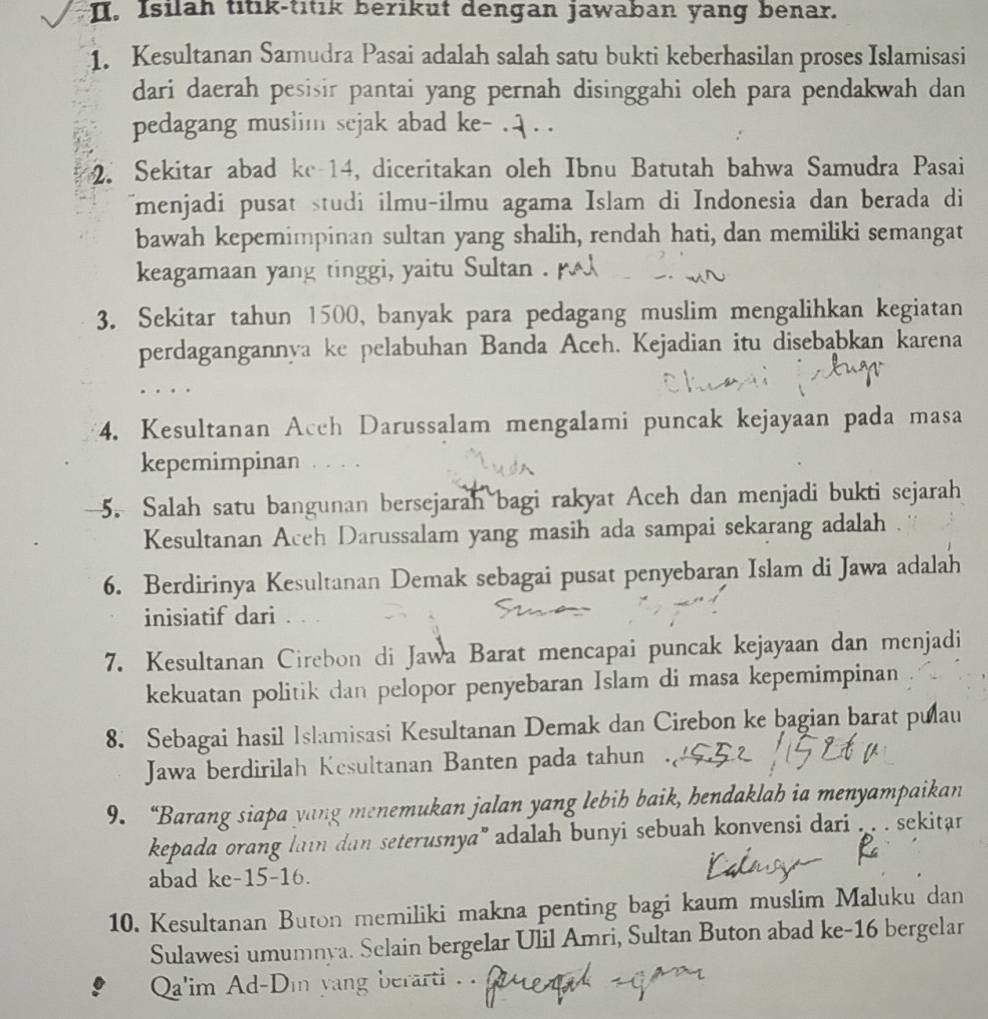 II. Isilah titik-titik berikut dengan jawaban yang benar.
1. Kesultanan Samudra Pasai adalah salah satu bukti keberhasilan proses Islamisasi
dari daerah pesisir pantai yang pernah disinggahi oleh para pendakwah dan
pedagang muslim sejak abad ke- . . . .
2. Sekitar abad ke-14, diceritakan oleh Ibnu Batutah bahwa Samudra Pasai
menjadi pusat studi ilmu-ilmu agama Islam di Indonesia dan berada di
bawah kepemimpinan sultan yang shalih, rendah hati, dan memiliki semangat
keagamaan yang tinggi, yaitu Sultan .
3. Sekitar tahun 1500, banyak para pedagang muslim mengalihkan kegiatan
perdagangannya ke pelabuhan Banda Aceh. Kejadian itu disebabkan karena
. . . .
4. Kesultanan Aceh Darussalam mengalami puncak kejayaan pada masa
kepemimpinan . . . .
5. Salah satu bangunan bersejarah bagi rakyat Aceh dan menjadi bukti sejarah
Kesultanan Aceh Darussalam yang masih ada sampai sekarang adalah .
6. Berdirinya Kesultanan Demak sebagai pusat penyebaran Islam di Jawa adalah
inisiatif dari . .
7. Kesultanan Cirebon di Jawa Barat mencapai puncak kejayaan dan menjadi
kekuatan politik dan pelopor penyebaran Islam di masa kepemimpinan .
8. Sebagai hasil Islamisasi Kesultanan Demak dan Cirebon ke bagian barat pulau
Jawa berdirilah Kesultanan Banten pada tahun . 1552
9. "Barang siapa yang menemukan jalan yang lebih baik, hendaklah ia menyampaikan
kepada orang lain dan seterusnya" adalah bunyi sebuah konvensi dari . . . sekitar
abad ke-15-16.
10. Kesultanan Buton memiliki makna penting bagi kaum muslim Maluku dan
Sulawesi umumnya. Selain bergelar Ulil Amri, Sultan Buton abad ke-16 bergelar
Qa'im Ad-Din yang berarti . .